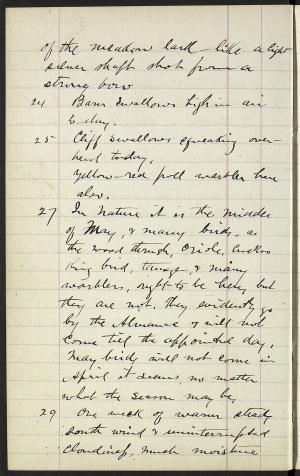 of the meadow lark – like a light
silver shaft shot from a
strong bow
24 Barn Swallows high in air
to-day.
25 Cliff swallows squeaking over-
head to-day,
Yellow-red poll warbler here
also.
27 In Nature it is the middle
of May, & many birds, as
the wood thrush, Oriole, Cuckoo
King bird, tanager, & many
warblers, ought to be here, but
they are not. They evidently go
by the Almanac & will not
come till the appointed day,
May birds will not come in
April it seems, no matter
what the season may be,
29 One week of warm steady
south wind & uninterrupted
cloudiness, much moisture